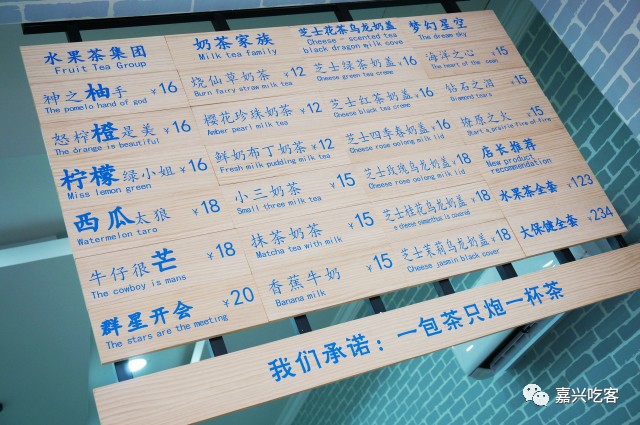 水果茶集团
Fruit Tea Group
神之柚手 ¥16
The pomelo hand of god
怒柠橙是美 ¥16
The orange is beautiful
柠檬绿小姐 ¥16
Miss lemon green
西瓜太狼 ¥18
Watermelon taro
牛仔很芒 ¥18
The cowboy is mans
群星开会 ¥20
The stars are the meeting
奶茶家族
Milk tea family
烧仙草奶茶 ¥12
Burn fairy straw milk tea
樱花珍珠奶茶 ¥12
Amber pearl milk tea
鲜奶布丁奶茶 ¥12
Fresh milk pudding milk tea
小三奶茶 ¥15
Small three milk tea
抹茶奶茶 ¥15
Matcha tea with milk
香蕉牛奶 ¥15
Banana milk
芝士花茶乌龙奶盖
Cheese - scented tea
black dragon milk cove
芝士绿茶奶盖 ¥16
Cheese green tea creme
芝士红茶奶盖 ¥16
Cheese black tea creme
芝士四季春奶盖 ¥16
Cheese rose oolong milk lid
芝士玫瑰乌龙奶盖 ¥18
Cheese rose oolong milk lid
芝士桂花乌龙奶盖 ¥18
芝士茉莉乌龙奶盖 ¥18
Cheese jasmin black cover
梦幻星空
The dream sky
海洋之心 ¥15
The heart of the sean
钻石之泪 ¥15
Diamond tears
燎原之火 ¥15
Start a prairie fire of fire
店长推荐
New product
recommendation
水果茶全套 ¥123
大保健全套 ¥234
我们承诺：一包茶只炮一杯茶
嘉兴吃客